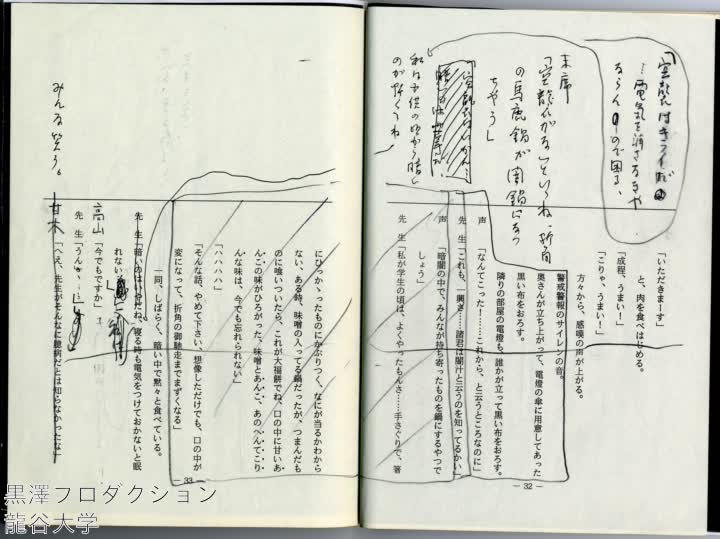 「いただきまーす」
と、肉を食べはじめる。
「成程、うまい！」
「こりゃ、うまい！」
方々から、感嘆の声が上がる。
警戒警報のサイレンの音。
奥さんが立ち上がって、電燈の傘に用意してあった
黒い布をおろす。
隣りの部屋の電燈も、誰かが立って黒い布をおろす。
声「なんてこった！……これから、と云うところなのに」
先生「これも、一興さ……諸君は闇汁と云うのを知ってるかい」
声「暗闇の中で、みんなが持ち寄ったものを鍋にするやつで
しょう」
先生「私が学生の頃は、よくやったもんさ……手さぐりで、箸
― 32 ―
末席
「空襲
の馬鹿鍋が闇鍋になっ
ちゃう」
私は子供の頃から暗い
のが怖くてね
にひっかゝったものにかぶりつく、なにが当るかわから
ない、ある時、味噌の入ってる鍋だったが、つまんだも
のに喰いついたら、これが大福餅でね、口の中に甘いあ
んこの味がひろがった、味噌とあんこ、あのへんてこり
んな味は、今でも忘れられない」
「ハハハハ」
「そんな話、やめて下さい、想像しただけでも、口の中が
変になって、折角の御馳走までまずくなる」
一同、しばらく、暗い中で黙々と食べている。
先生「暗いのはいやだね、寝る時も電気をつけておかないと眠
れない」
高山「今でもですか」
先生「うん
甘木「へえ、先生がそんなに臆病だとは知らなかったな」
みんな笑う。
― 33 ―
黒澤プロダクション
龍谷大学